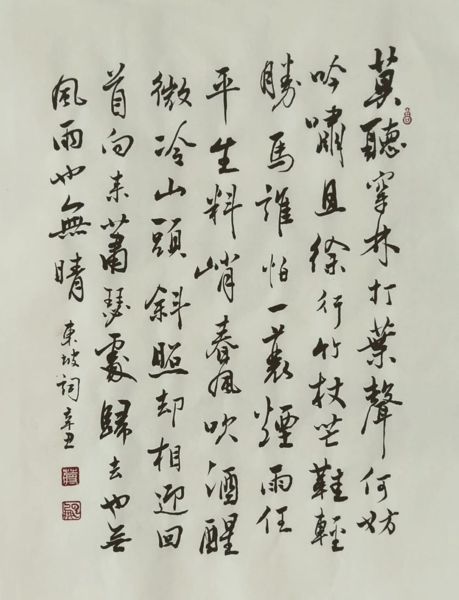 莫聽穿林打葉聲何妨
吟嘯且徐行竹杖芒鞋輕
勝馬誰怕一蓑煙雨任
平生料峭春風吹酒醒
微冷山頭斜照却相迎回
首向来蕭瑟處歸去也无
風雨也無晴
東坡詞辛丑